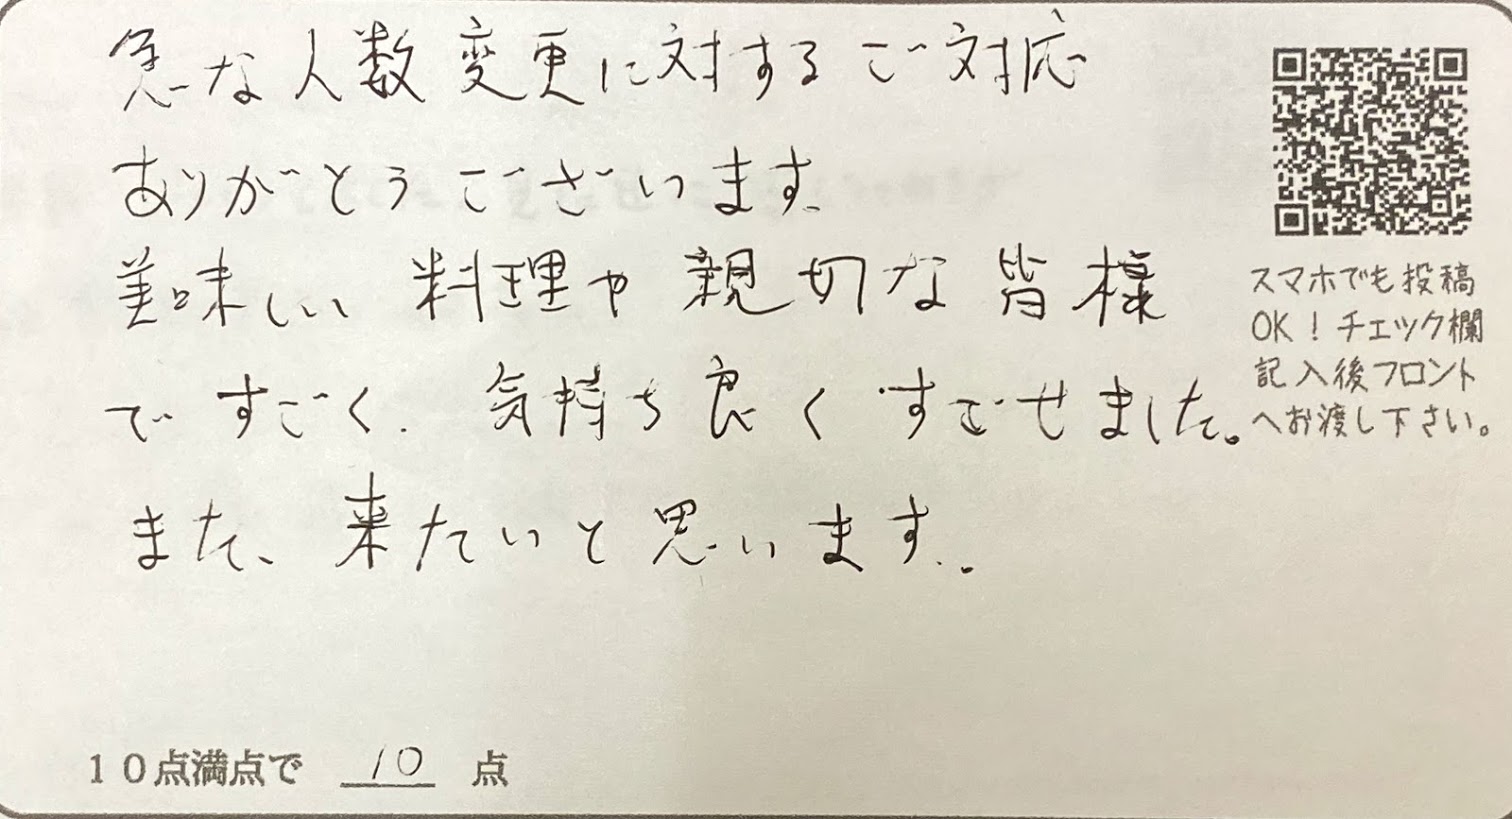 急な人数変更に対するご対応
ありがとうございます。
美味しい料理や親切な皆様
ですごく、気持ち良くすごせました。
また、来たいと思います。
スマホでも投稿
OK！チェック欄
記入後フロント
へお渡し下さい。
10点満点で 10 点